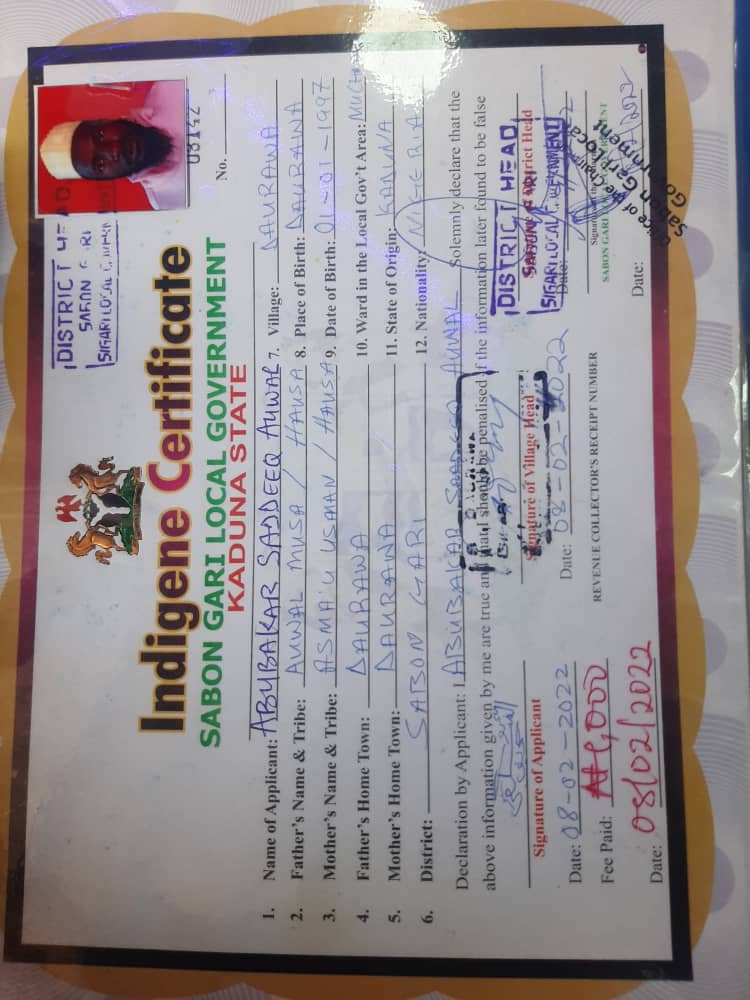 DISTRICT HEAD
SABON GARI
S/GARI LOCAL GOVERNMENT
Indigene Certificate
SABON GARI LOCAL GOVERNMENT
KADUNA STATE
No. 03142
1. Name of Applicant: ABUBAKAR SADDEEQ AUWAL
2. Father's Name & Tribe: AUWAL MUSA / HAUSA
3. Mother's Name & Tribe: ASMA'U USMAN / HAUSA
4. Father's Home Town: DAURAWA
5. Mother's Home Town: DAURAWA
6. District: SABON GARI
7. Village: DAURAWA
8. Place of Birth: DAURAWA
9. Date of Birth: 01-01-1997
10. Ward in the Local Gov't Area:
11. State of Origin: KADUNA
12. Nationality: NIGERIA
Declaration by Applicant: I ABUBAKAR SADDEEQ AUWAL Solemnly declare that the
above information given by me are true and that I should be penalised if the information later found to be false
Signature of Applicant
Date: 08-02-2022
Signature of Village Head
Date: 08-02-2022
DISTRICT HEAD
SABON GARI
S/GARI LOCAL GOVERNMENT
Signature of District Head
Date:
Fee Paid: ₦1,000
REVENUE COLLECTOR'S RECEIPT NUMBER
Date: 08/02/2022
Office of the Chairman
Sabon Gari Local
Government
SABON GARI LOCAL GOVERNMENT
Date: